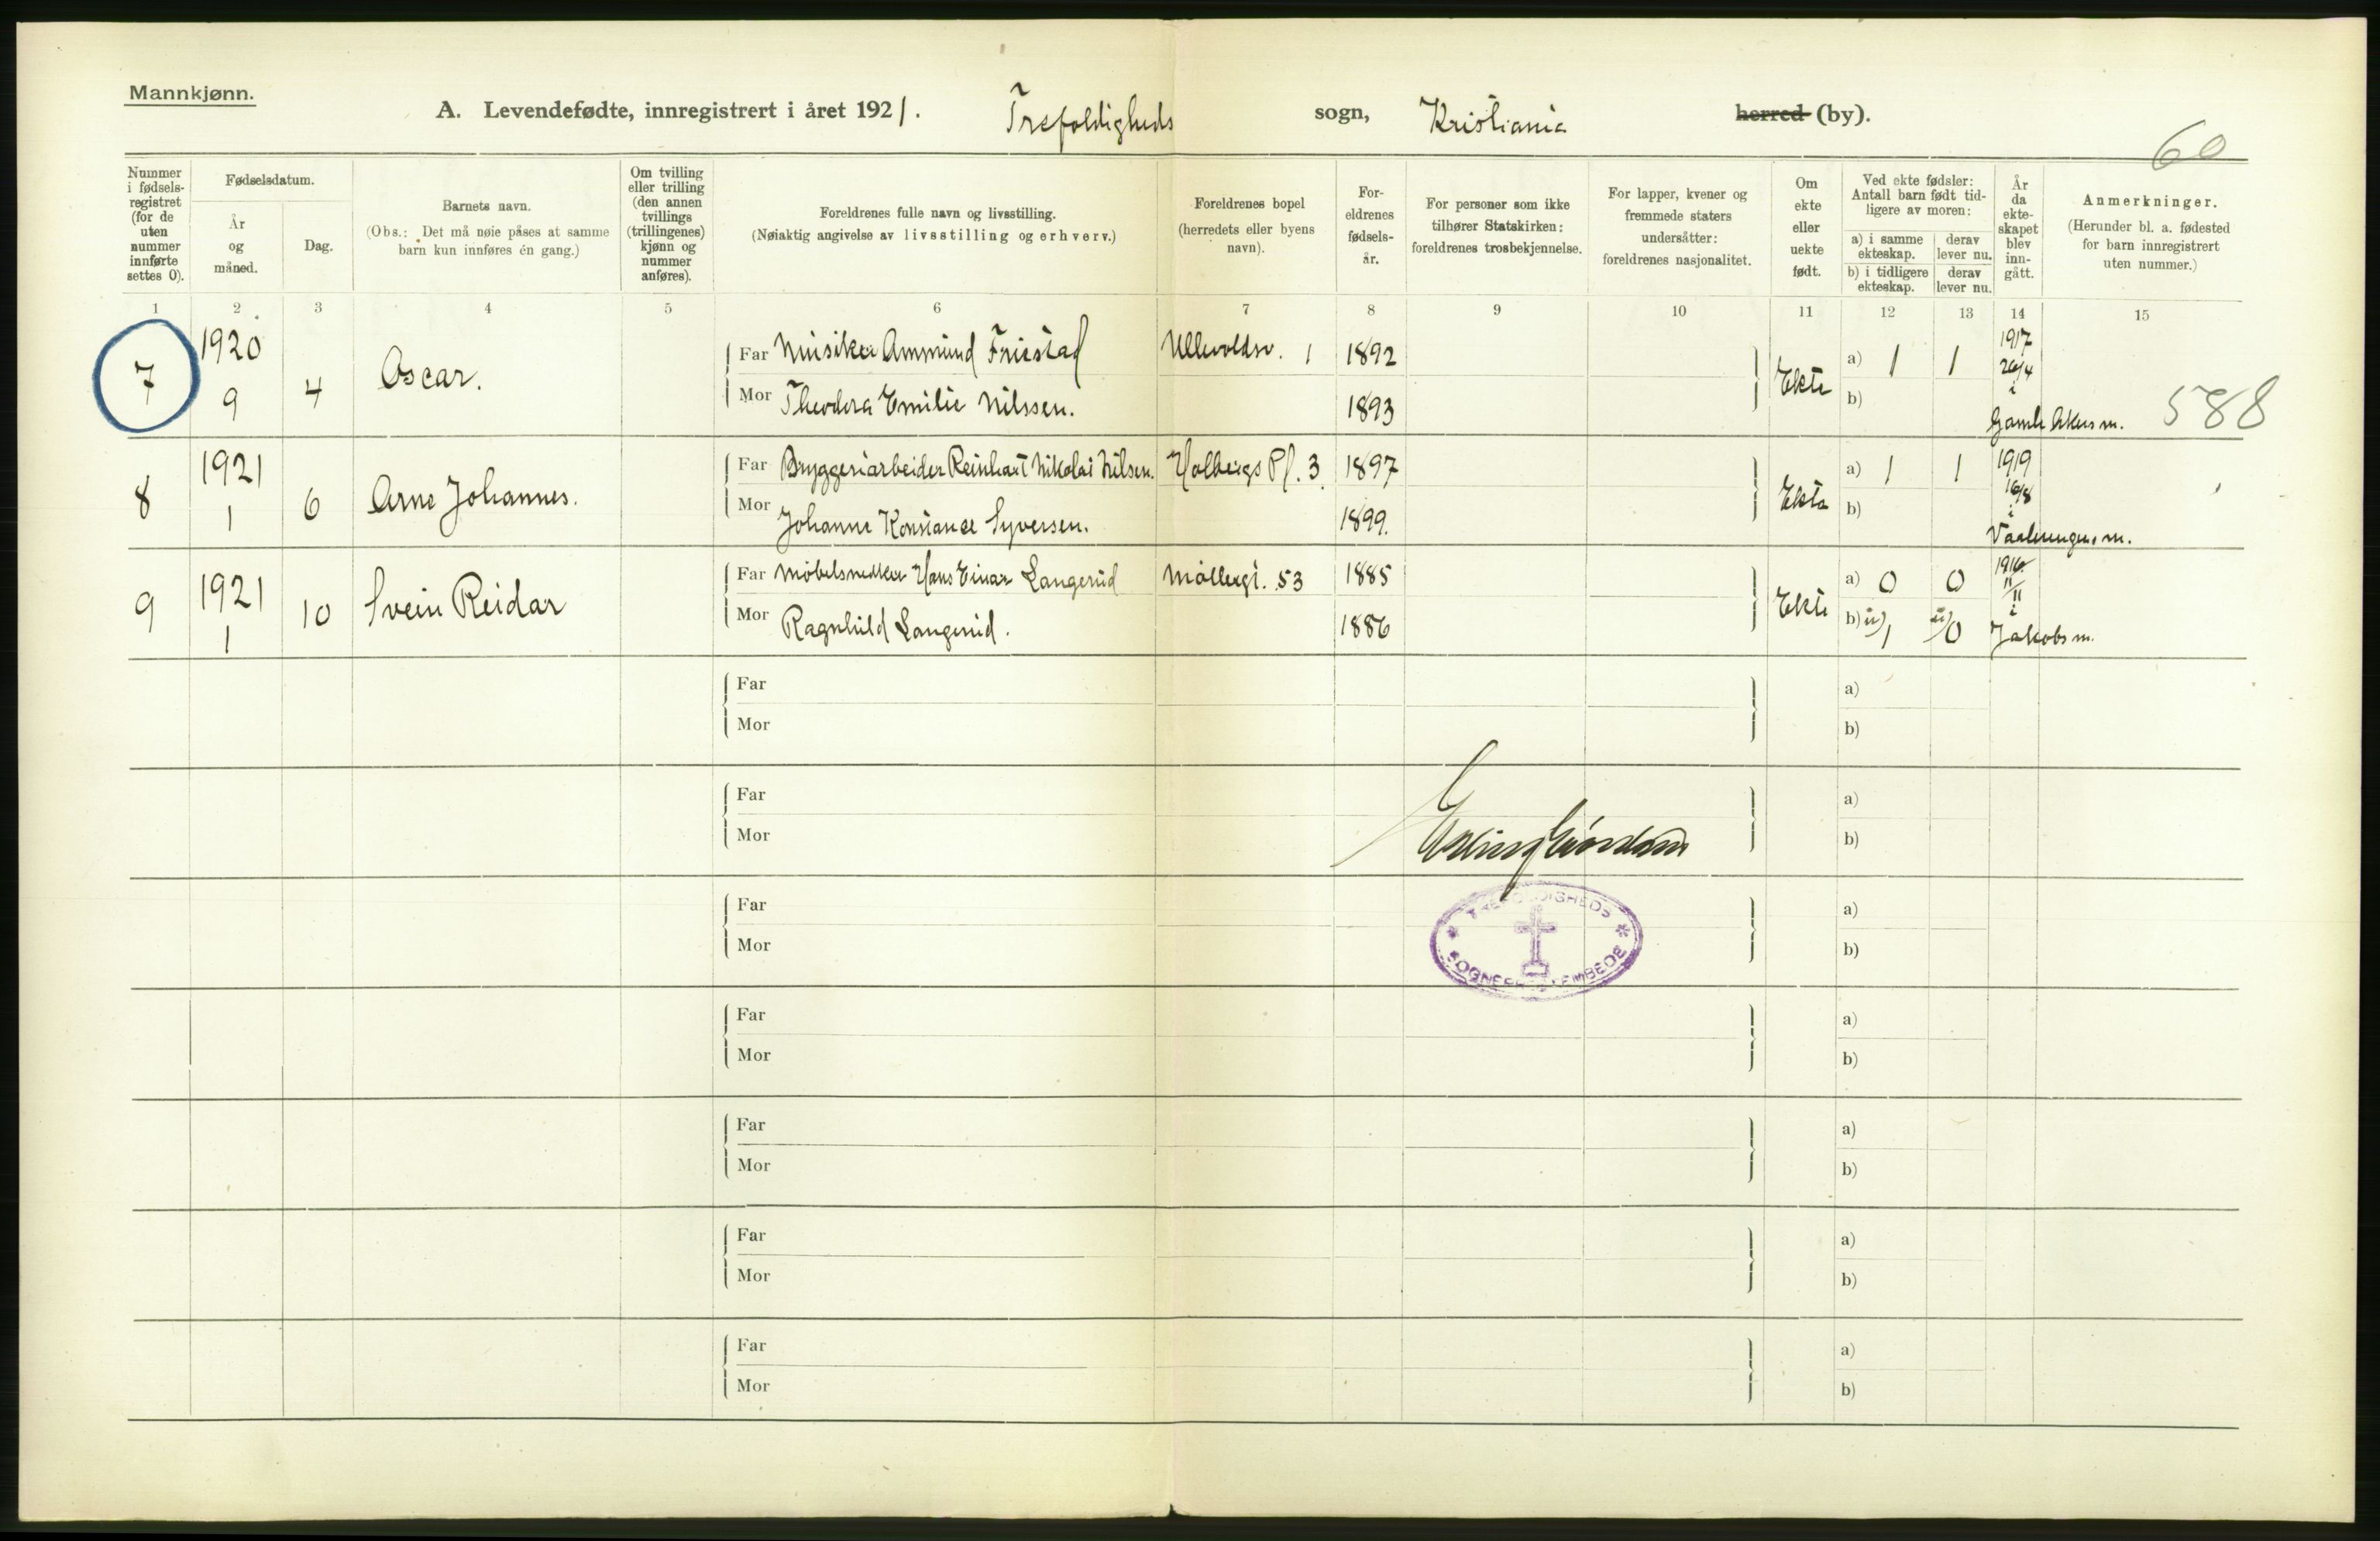 Mannkjønn.
A. Levendefødte, innregistrert i året 1921. Trefoldigheds sogn, Kristiania herred (by).
60
Nummer i fødsels-registret (for de uten nummer innførte settes 0).
Fødselsdatum.
År og måned.
Dag.
Barnets navn.
(Obs.: Det må nøie påses at samme barn kun innføres én gang.)
Om tvilling eller trilling (den annen tvillings (trillingenes) kjønn og nummer anføres).
Foreldrenes fulle navn og livsstilling.
(Nøiaktig angivelse av livsstilling og erhverv.)
Foreldrenes bopel (herredets eller byens navn).
For-eldrenes fødsels-år.
For personer som ikke tilhører Statskirken: foreldrenes trosbekjennelse.
For lapper, kvener og fremmede staters undersåtter: foreldrenes nasjonalitet.
Om ekte eller uekte født.
Ved ekte fødsler: Antall barn født tid-ligere av moren:
a) i samme ekteskap.
derav lever nu.
b) i tidligere ekteskap.
derav lever nu.
År da ekte-skapet blev inn-gått.
Anmerkninger.
(Herunder bl. a. fødested for barn innregistrert uten nummer.)
1 2 3 4 5 6 7 8 9 10 11 12 13 14 15
7 1920 9 4 Oscar. Far Musiker Ammund Friestad Ullevoldsv. 1 1892 Ekte a) 1 1 1917 26/4 i
Mor Theodora Emilie Nilssen. 1893 b) Gamle Akers m. 588
8 1921 1 6 Arne Johannes. Far Bryggeriarbeider Reinhart Nikolai Nilsen. Holbergs Pl. 3. 1897 Ekte a) 1 1 1919 16/8 i
Mor Johanne Konstanse Syversen. 1899. b) Vaalerengens m.
9 1921 1 10 Svein Reidar Far Møbelsnedker Hans Einar Langerud Møllergt. 53 1885 Ekte a) 0 0 1916 11/11 i
Mor Ragnhild Langerud. 1886 b) 1 0 Jakobs m.
Far a)
Mor b)
Far a)
Mor b)
Far a)
Mor b)
TREFOLDIGHEDS
SOGNEPRESTEMBEDE
Far a)
Mor b)
Far a)
Mor b)
Far a)
Mor b)
Far a)
Mor b)